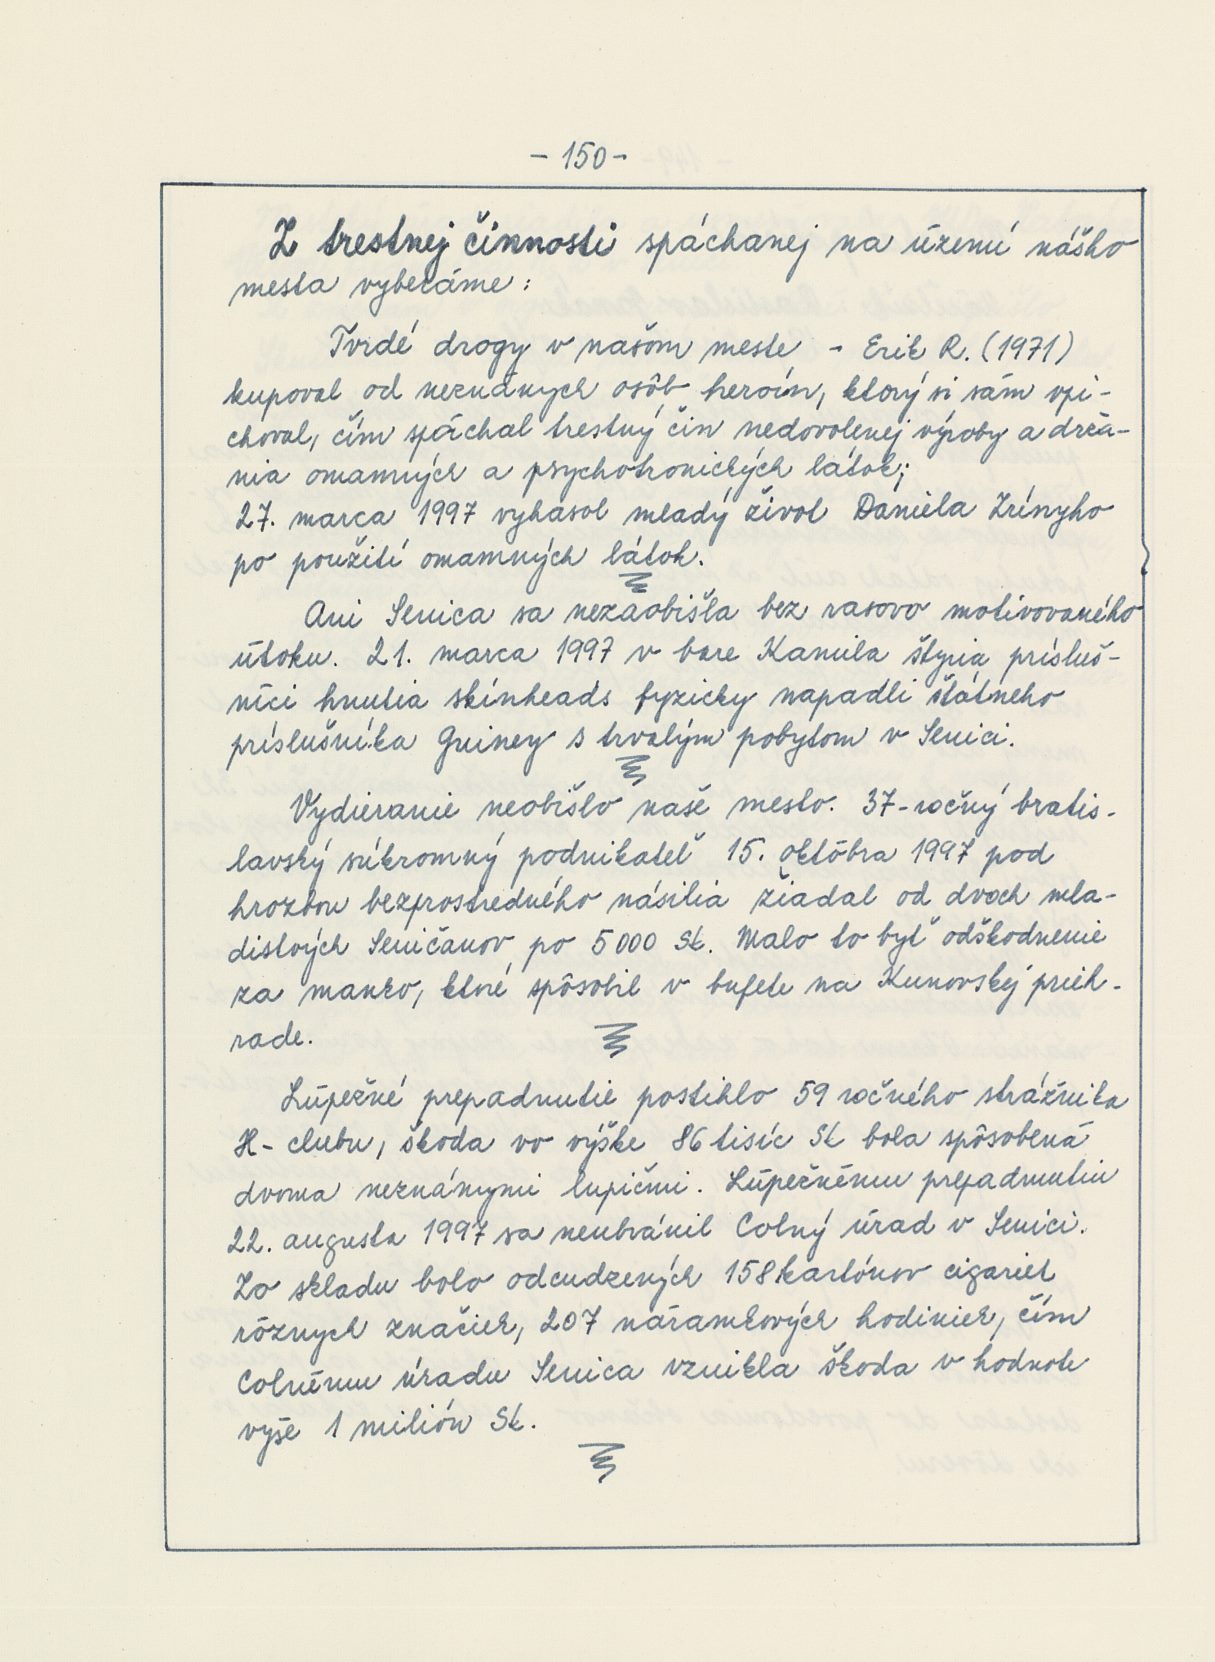 - 150 -
Z trestnej činnosti spáchanej na území nášho
mesta vyberáme :
Tvrdé drogy v našom meste - Erik R. (1971)
kupoval od neznámych osôb heroín, ktorý si sám vpi-
choval, čím spáchal trestný čin nedovolenej výroby a drža-
nia omamných a psychotronických látok;
27. marca 1997 vyhasol mladý život Daniela Zrínyho
po použití omamných látok.
Ani Senica sa nezaobišla bez rasovo motivovaného
útoku. 21. marca 1997 v bare Kamila štyria prísluš-
níci hnutia skinheads fyzicky napadli štátneho
príslušníka Guiney s trvalým pobytom v Senici.
Vydieranie neobišlo naše mesto. 37-ročný bratis-
lavský súkromný podnikateľ 15. októbra 1997 pod
hrozbou bezprostredného násilia žiadal od dvoch mla-
distvých Seničanov po 5 000 Sk. Malo to byť odškodnenie
za manko, ktoré spôsobil v bufete na Kunovskej prieh-
rade.
Lúpežné prepadnutie postihlo 59 ročného strážnika
H- clubu, škoda vo výške 86 tisíc Sk bola spôsobená
dvoma neznámymi lupičmi. Lúpežnému prepadnutiu
22. augusta 1997 sa neubránil Colný úrad v Senici.
Zo skladu bolo odcudzených 158 kartónov cigariet
rôznych značiek, 207 náramkových hodiniek, čím
Colnému úradu Senica vznikla škoda v hodnote
vyše 1 milión Sk.